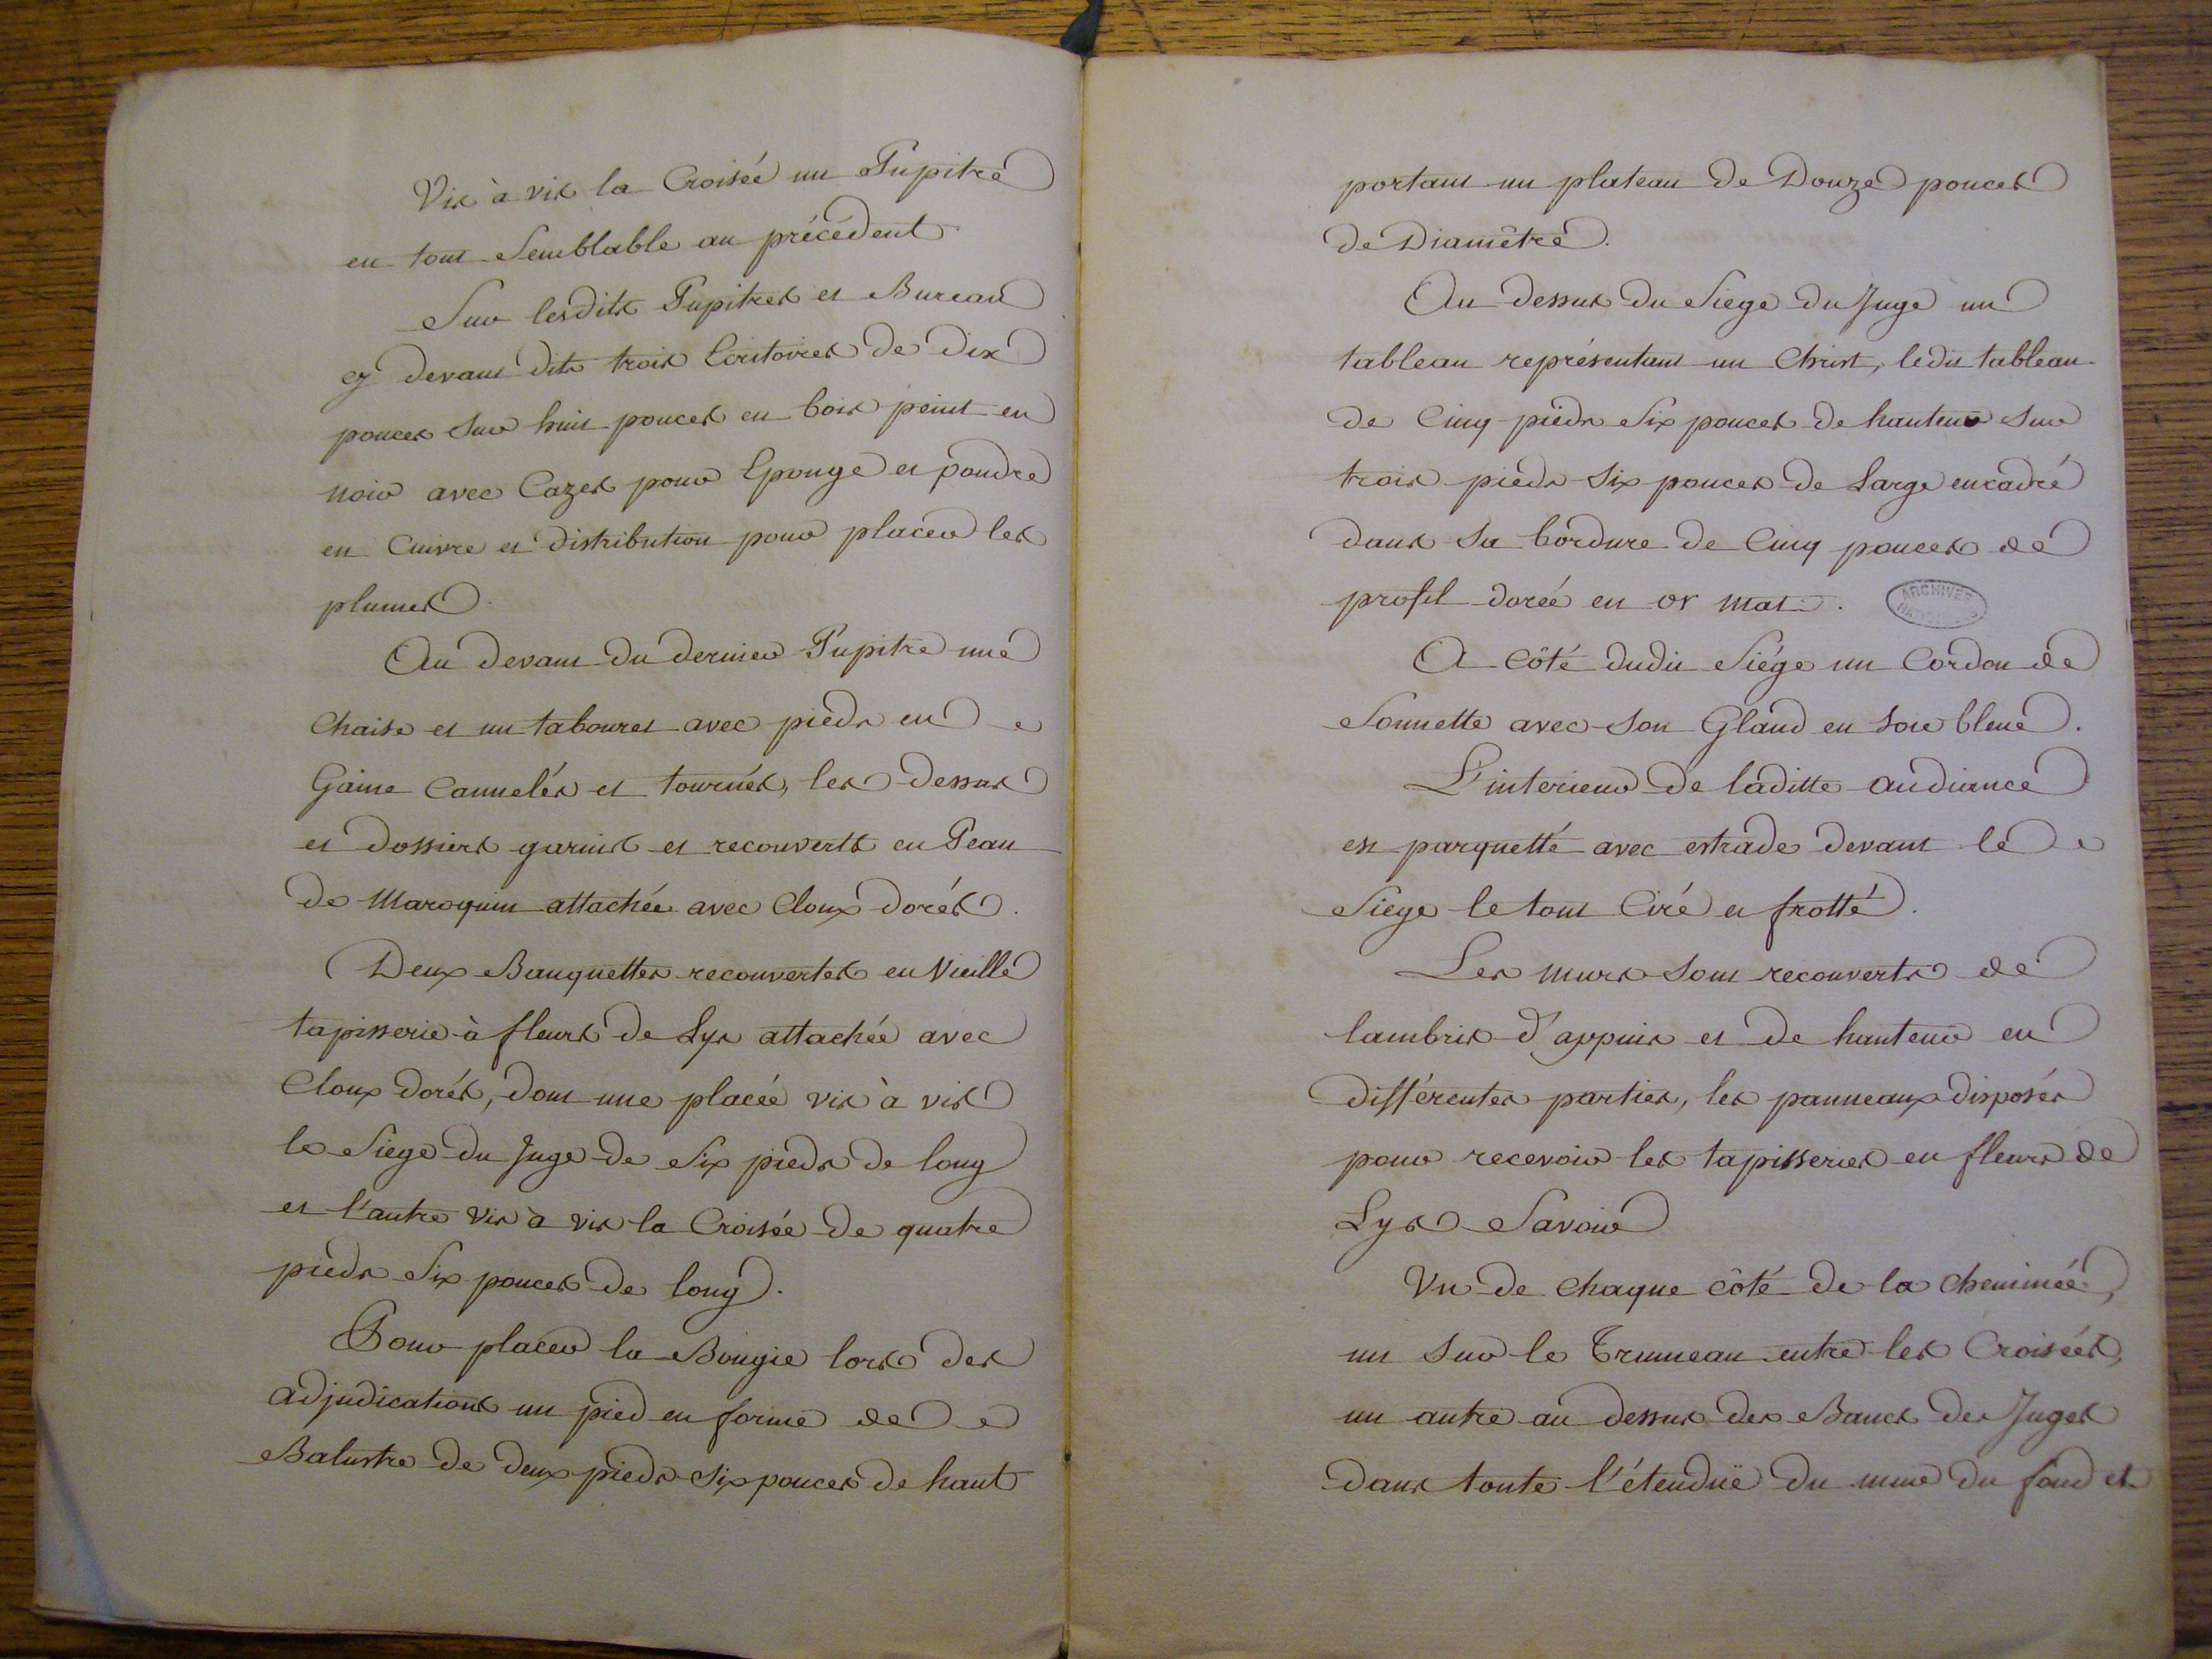 Vis à vis la Croisée un Pupitre
en tout Semblable au précédent
Sur lesdits Pupitres et Bureau
cy devant dits trois Ecritoires de dix
pouces sur huit pouces en bois peint en
noir avec Cazes pour Eponge et poudre
en Cuivre et distribution pour placer les
plumes.
Au devant du dernier Pupitre une
Chaise et un tabouret avec pieds en
Gaine Cannelés et tournés, les dessus
et dossiers garnis et recouverts en Peau
de Maroquin attachée avec Cloux dorés.
Deux Banquettes recouvertes en Vieille
tapisserie à fleurs de Lys attachée avec
Cloux dorés, dont une placée vis à vis
le Siege du Juge de Six pieds de long
et l'autre vis à vis la Croisée de quatre
pieds Six pouces de long.
Pour placer la Bougie lors des
adjudications un pied en forme de
Balustre de deux pieds Six pouces de haut
portant un plateau de Douze pouces
de Diamêtre.
Au dessus du Siege du Juge un
tableau représentant un Christ, ledit tableau
de Cinq pieds Six pouces de hauteur sur
trois pieds Six pouces de Large encadré
dans sa bordure de Cinq pouces de
profil dorée en or mat.
ARCHIVES
A côté dudit Siége un Cordon de
Sonnette avec Son Gland en Soie bleue.
L'interieur de laditte audiance
est parquetté avec estrade devant le
Siege le tout Ciré et frotté.
Les murs sont recouverts de
lambris d'appuis et de hauteur en
différentes parties, les panneaux disposés
pour recevoir les tapisseries en fleurs de
Lys Savoir
Un de chaque côté de la cheminée,
un Sur le Trumeau entre les Croisées,
un autre au dessus des Bancs des Juges
dans toute l'étendüe du mur du fond et